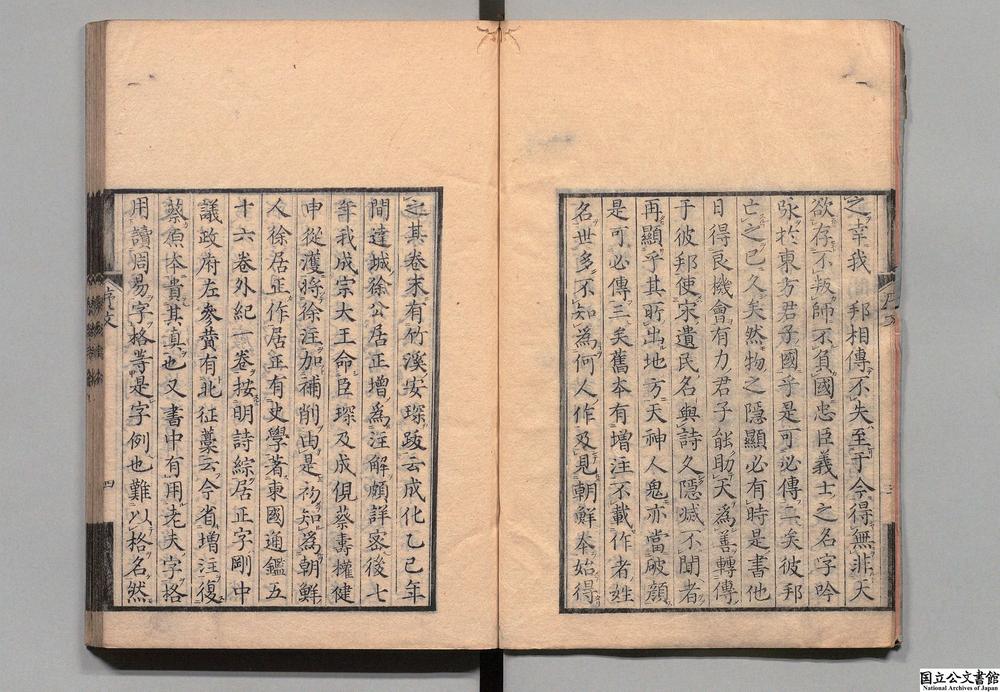 之幸我　邦相傳不失至于今得無非天
欲存不叛師不負國忠臣義士之名字吟
咏於東方君子國乎是可必傳二矣彼邦
亡之已久矣然物之隱顯必有時是書他
日得良機會有力君子能助天為善轉傳
于彼邦使宋遺民名與詩久隱滅不聞者
再顯乎其所出地方天神人鬼亦當破顔
是可必傳三矣舊本有增注不載作者姓
名世多不知為何人作及見朝鮮本始得
之其卷末有竹溪安琛跋云成化乙巳年
間達城徐公居正增為注解頗詳密後七
年我成宗大王命臣琛及成俔蔡壽權健
申從濩將徐注加補削由是初知為朝鮮
人徐居正作居正有史學著東國通鑑五
十六卷外紀一卷按明詩綜居正字剛中
議政府左參賛有北征藁云今省增注復
蔡原本貴其真也又書中有用老夫字格
用讀周易字格等是字例也難以格名然
序文
三
四
国立公文書館
National Archives of Japan